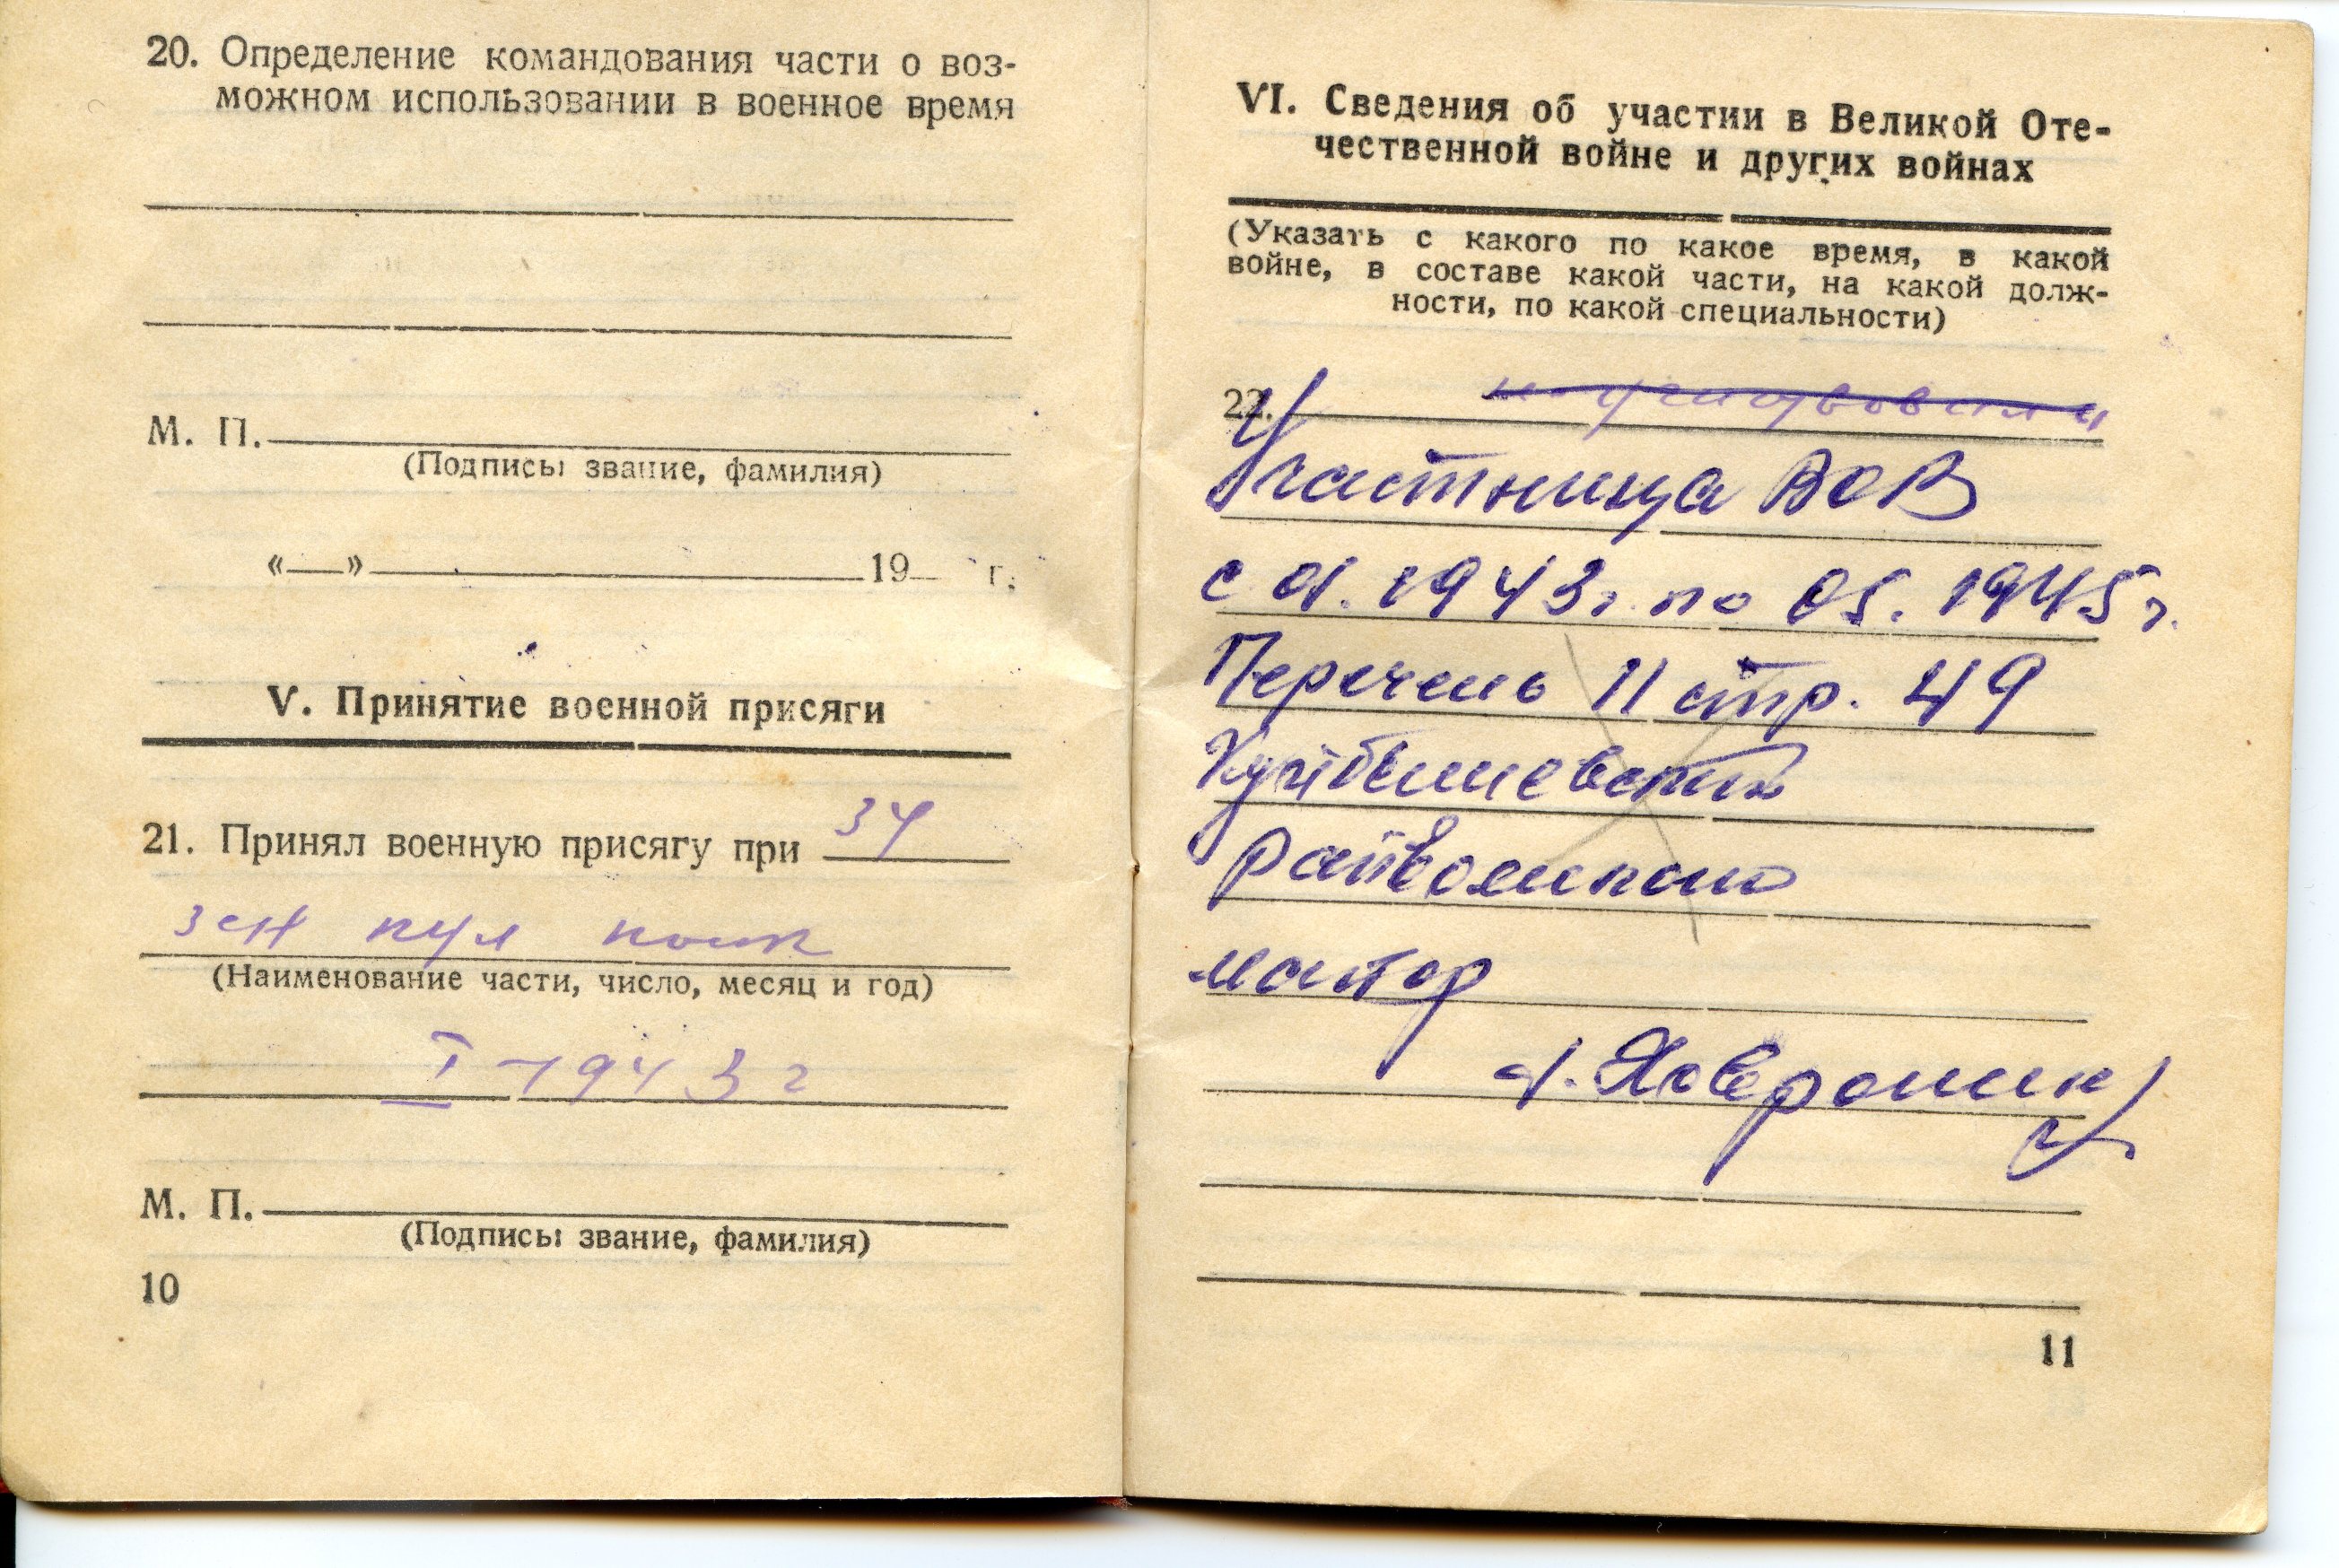 20. Определение командования части о воз-
можном использовании в военное время
М. П.
(Подпись, звание, фамилия)
«—» 19 г.
V. Принятие военной присяги
21. Принял военную присягу при 34
зен пул полк
(Наименование части, число, месяц и год)
I 1943 г
М. П.
(Подпись, звание, фамилия)
10
VI. Сведения об участии в Великой Оте-
чественной войне и других войнах
(Указать с какого по какое время, в какой
войне, в составе какой части, на какой долж-
ности, по какой специальности)
22. не участвовала
Участница ВОВ
с 01. 1943 г. по 05. 1945 г.
Перечень 11 стр. 49
Куйбышевский
райвоенком
майор
11